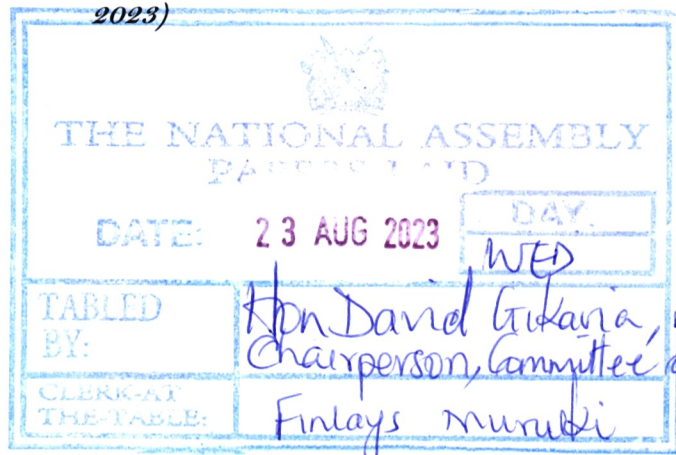 2023)
THE NATIONAL ASSEMBLY
PAPERS LAID
DATE: 23 AUG 2023 DAY.
WED
TABLED BY: Hon David Gikaria,
Chairperson, Committee
CLERK-AT THE-TABLE: Finlays Muruki